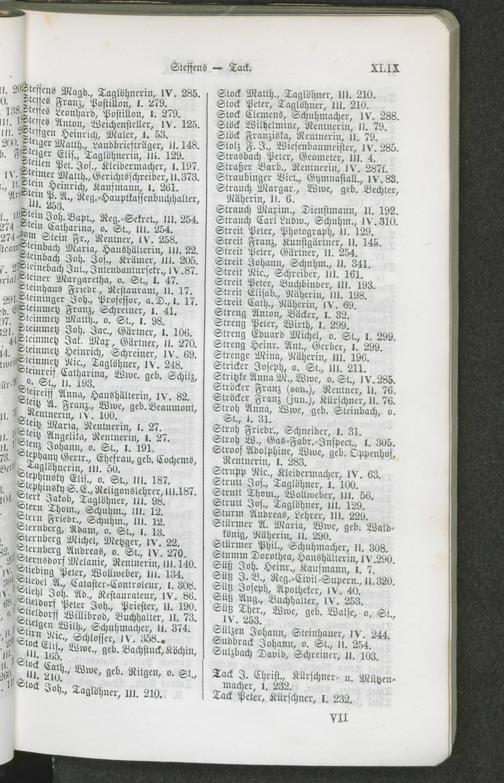 Steffens — Tack.
XLIX
Steffens Magd., Taglöhnerin, IV. 285.
Steffes Franz, Postillon, I. 279.
Steffes Leonhard, Postillon, I. 279.
Steffes Anton, Weichensteller, IV. 125.
Steffgen Heinrich, Maler, I. 53.
Steiger Matth., Landbriefträger, II. 148.
Steiger Elis., Taglöhnerin, III. 129.
Steilen Pet. Jos., Kleidermacher, I. 197.
Steimer Matth., Gerichtsschreiber, II. 373.
Stein Heinrich, Kaufmann, I. 261.
Stein P. A., Reg.-Hauptkassenbuchhalter,
III. 253.
Stein Joh. Bapt., Reg.-Sekret., III. 254.
Stein Catharina, o. St., III. 254.
vom Stein Fr., Rentner, IV. 258.
Steinbach Maria, Haushälterin, III. 22.
Steinbach Joh. Jos., Krämer, III. 205.
Steinebach Jul., Intendantursekr., IV. 87.
Steiner Margaretha, o. St., I. 47.
Steinhaus Friedr., Restaurant, II. 17.
Steininger Joh., Professor, a. D., I. 17.
Steinmetz Franz, Schreiner, I. 41.
Steinmetz Matth., o. St., I. 98.
Steinmetz Joh. Jac., Gärtner, I. 106.
Steinmetz Jak. Max, Gärtner, II. 270.
Steinmetz Heinrich, Schreiner, IV. 69.
Steinmetz Nic., Taglöhner, IV. 248.
Steinreif Catharina, Wwe, geb. Schilz,
o. St., II. 193.
Steireiff Anna, Haushälterin, IV. 82.
Steitz A. Franz., Wwe, geb. Beaumont,
Rentnerin, IV. 100.
Steitz Maria, Rentnerin, I. 27.
Steitz Angelika, Rentnerin, I. 27.
Stenz Johann, o. St., I. 191.
Stephany Gertr., Ehefrau, geb. Cochems,
Taglöhnerin, III. 50.
Stephinsky Elis., o. St., III. 187.
Stephinsky S. C., Religionslehrer, III. 187.
Sterf Jakob, Taglöhner, III. 98.
Stern Thom., Schuhm., III. 12.
Stern Friedr., Schuhm., III. 12.
Sternberg, Adam, o. St., I. 13.
Sternberg Michel, Metzger, IV. 22.
Sternberg Andreas, o. St., IV. 270.
Sternsdorf Melanie, Rentnerin, III. 140.
Stiebing Peter, Wollweber, III. 134.
Stiedel A., Cataster-Controleur, I. 308.
Stiehl Joh. Ad., Restaurateur, IV. 86.
Stieldorf Peter Joh., Priester, II. 190.
Stieldorff Willibrod, Buchhalter, II. 73.
Stielgen Wilh., Schuhmacher, II. 374.
Stirn Nic., Schlosser, IV. 358.
Stock Elis., Wwe, geb. Bachstuck, Köchin,
III. 165.
Stock Cath., Wwe, geb. Ritgen, o. St.,
III. 210.
Stock Joh., Taglöhner, III. 210.
Stock Matth., Taglöhner, III. 210.
Stock Peter, Taglöhner, III. 210.
Stock Clemens, Schuhmacher, IV. 288.
Stöck Wilhelmine, Rentnerin, II. 79.
Stöck Franziska, Rentnerin, II. 79.
Stolz F. J., Wiesenbaumeister, IV. 285.
Strasbach Peter, Geometer, III. 4.
Straßer Barb., Rentnerin, IV. 287f.
Straubinger Vict., Gymnasiall., IV. 83.
Strauch Margar., Wwe, geb. Bechter,
Näherin, II. 6.
Strauch Maxim., Dienstmann, II. 192.
Strauch Carl Ludw., Schuhm., IV. 310.
Streit Peter, Photograph, II. 129.
Streit Franz, Kunstgärtner, II. 145.
Streit Peter, Gärtner, II. 254.
Streit Johann, Schuhm., II. 341.
Streit Nic., Schreiber, III. 161.
Streit Peter, Buchbinder, III. 193.
Streit Elisab., Näherin, III. 198.
Streit Cath., Näherin, IV. 69.
Streng Anton, Bäcker, I. 32.
Streng Peter, Wirth, I. 299.
Streng Eduard Michel, o. St., I. 299.
Streng Heinr. Ant., Gerber, I. 299.
Strenge Mina, Näherin, III. 196.
Stricker Joseph, o. St., III. 211.
Stritzke Anna M., Wwe, o. St., IV. 285.
Ströcker Franz (sen.), Rentner, II. 76.
Ströcker Franz (jun.), Kürschner, II. 76.
Stroh Anna, Wwe, geb. Steinbach, o.
St., I. 31.
Stroh Friedr., Schneider, I. 31.
Stroh W., Gas-Fabr.-Inspect., I. 305.
Stroof Adolphine, Wwe, geb. Oppenhof,
Rentnerin, I. 283.
Strupp Nic., Kleidermacher, IV. 63.
Strutt Jos., Taglöhner, I. 100.
Strutt Thom., Wollweber, III. 56.
Strutt Joh., Taglöhner, III. 129.
Sturm Andreas, Lehrer, III. 229.
Stürmer A. Maria, Wwe, geb. Wald-
könig, Näherin, II. 290.
Stürmer Phil., Schuhmacher, II. 308.
Stumm Dorothea, Haushälterin, IV. 290.
Süß Joh. Heinr., Kaufmann, I. 7.
Süß J. B., Reg.-Civil-Supern., II. 320.
Süß Joseph, Apotheker, IV. 40.
Süß Aug., Buchhalter, IV. 253.
Süß Ther., Wwe, geb. Walse, o. St.,
IV. 253.
Sülzen Johann, Steinhauer, IV. 244.
Sudbrack Johann, o. St., II. 254.
Sulzbach David, Schreiner, II. 103.
Tack J. Christ., Kürschner- u. Mützen-
macher, I. 232.
Tack Peter, Kürschner, I. 232.
VII